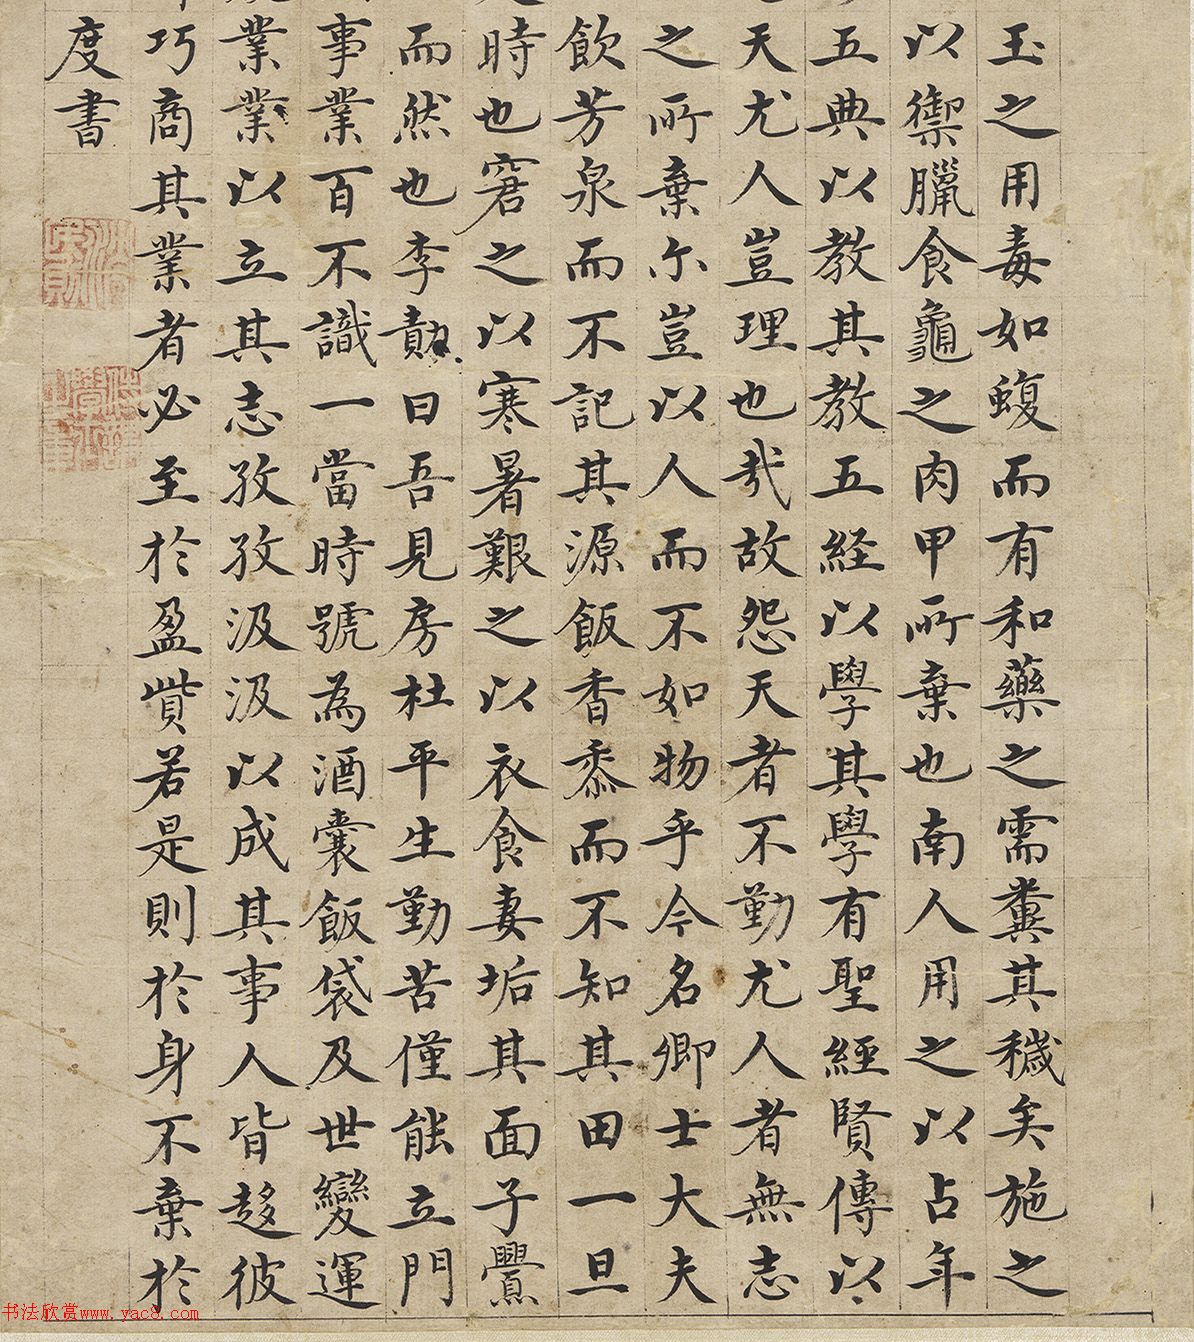 玉之用毒如蝮而有和藥之需糞其穢矣施之
以禦臘食龜之肉甲所棄也南人用之以占年
五典以教其教五経以學其學有聖經賢傳以
天尤人豈理也哉故怨天者不勤尤人者無志
之所棄尓豈以人而不如物乎今名卿士大夫
飲芳泉而不記其源飯香黍而不知其田一旦
時也窘之以寒暑艱之以衣食妻垢其面子鷽
而然也李勣曰吾見房杜平生勤苦僅能立門
事業百不識一當時號為酒囊飯袋及世變運
業業以立其志孜孜汲汲以成其事人皆趍彼
巧商其業者必至於盈貲若是則於身不棄於
度書
书法欣赏www.yac8.com